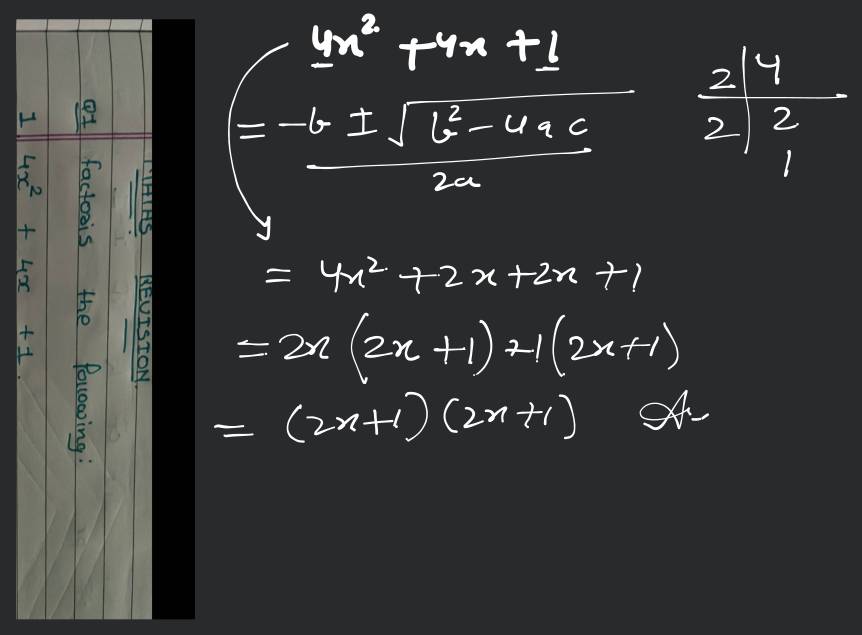 MATHS REVISION
Q1 factosis the following:
1 4x² + 4x + 1.
4x² + 4x + 1
= -b ± √b² - 4ac
2a
2 | 4
2 | 2
1
= 4x² + 2x + 2x + 1
= 2x (2x + 1) + 1 (2x + 1)
= (2x + 1) (2x + 1)